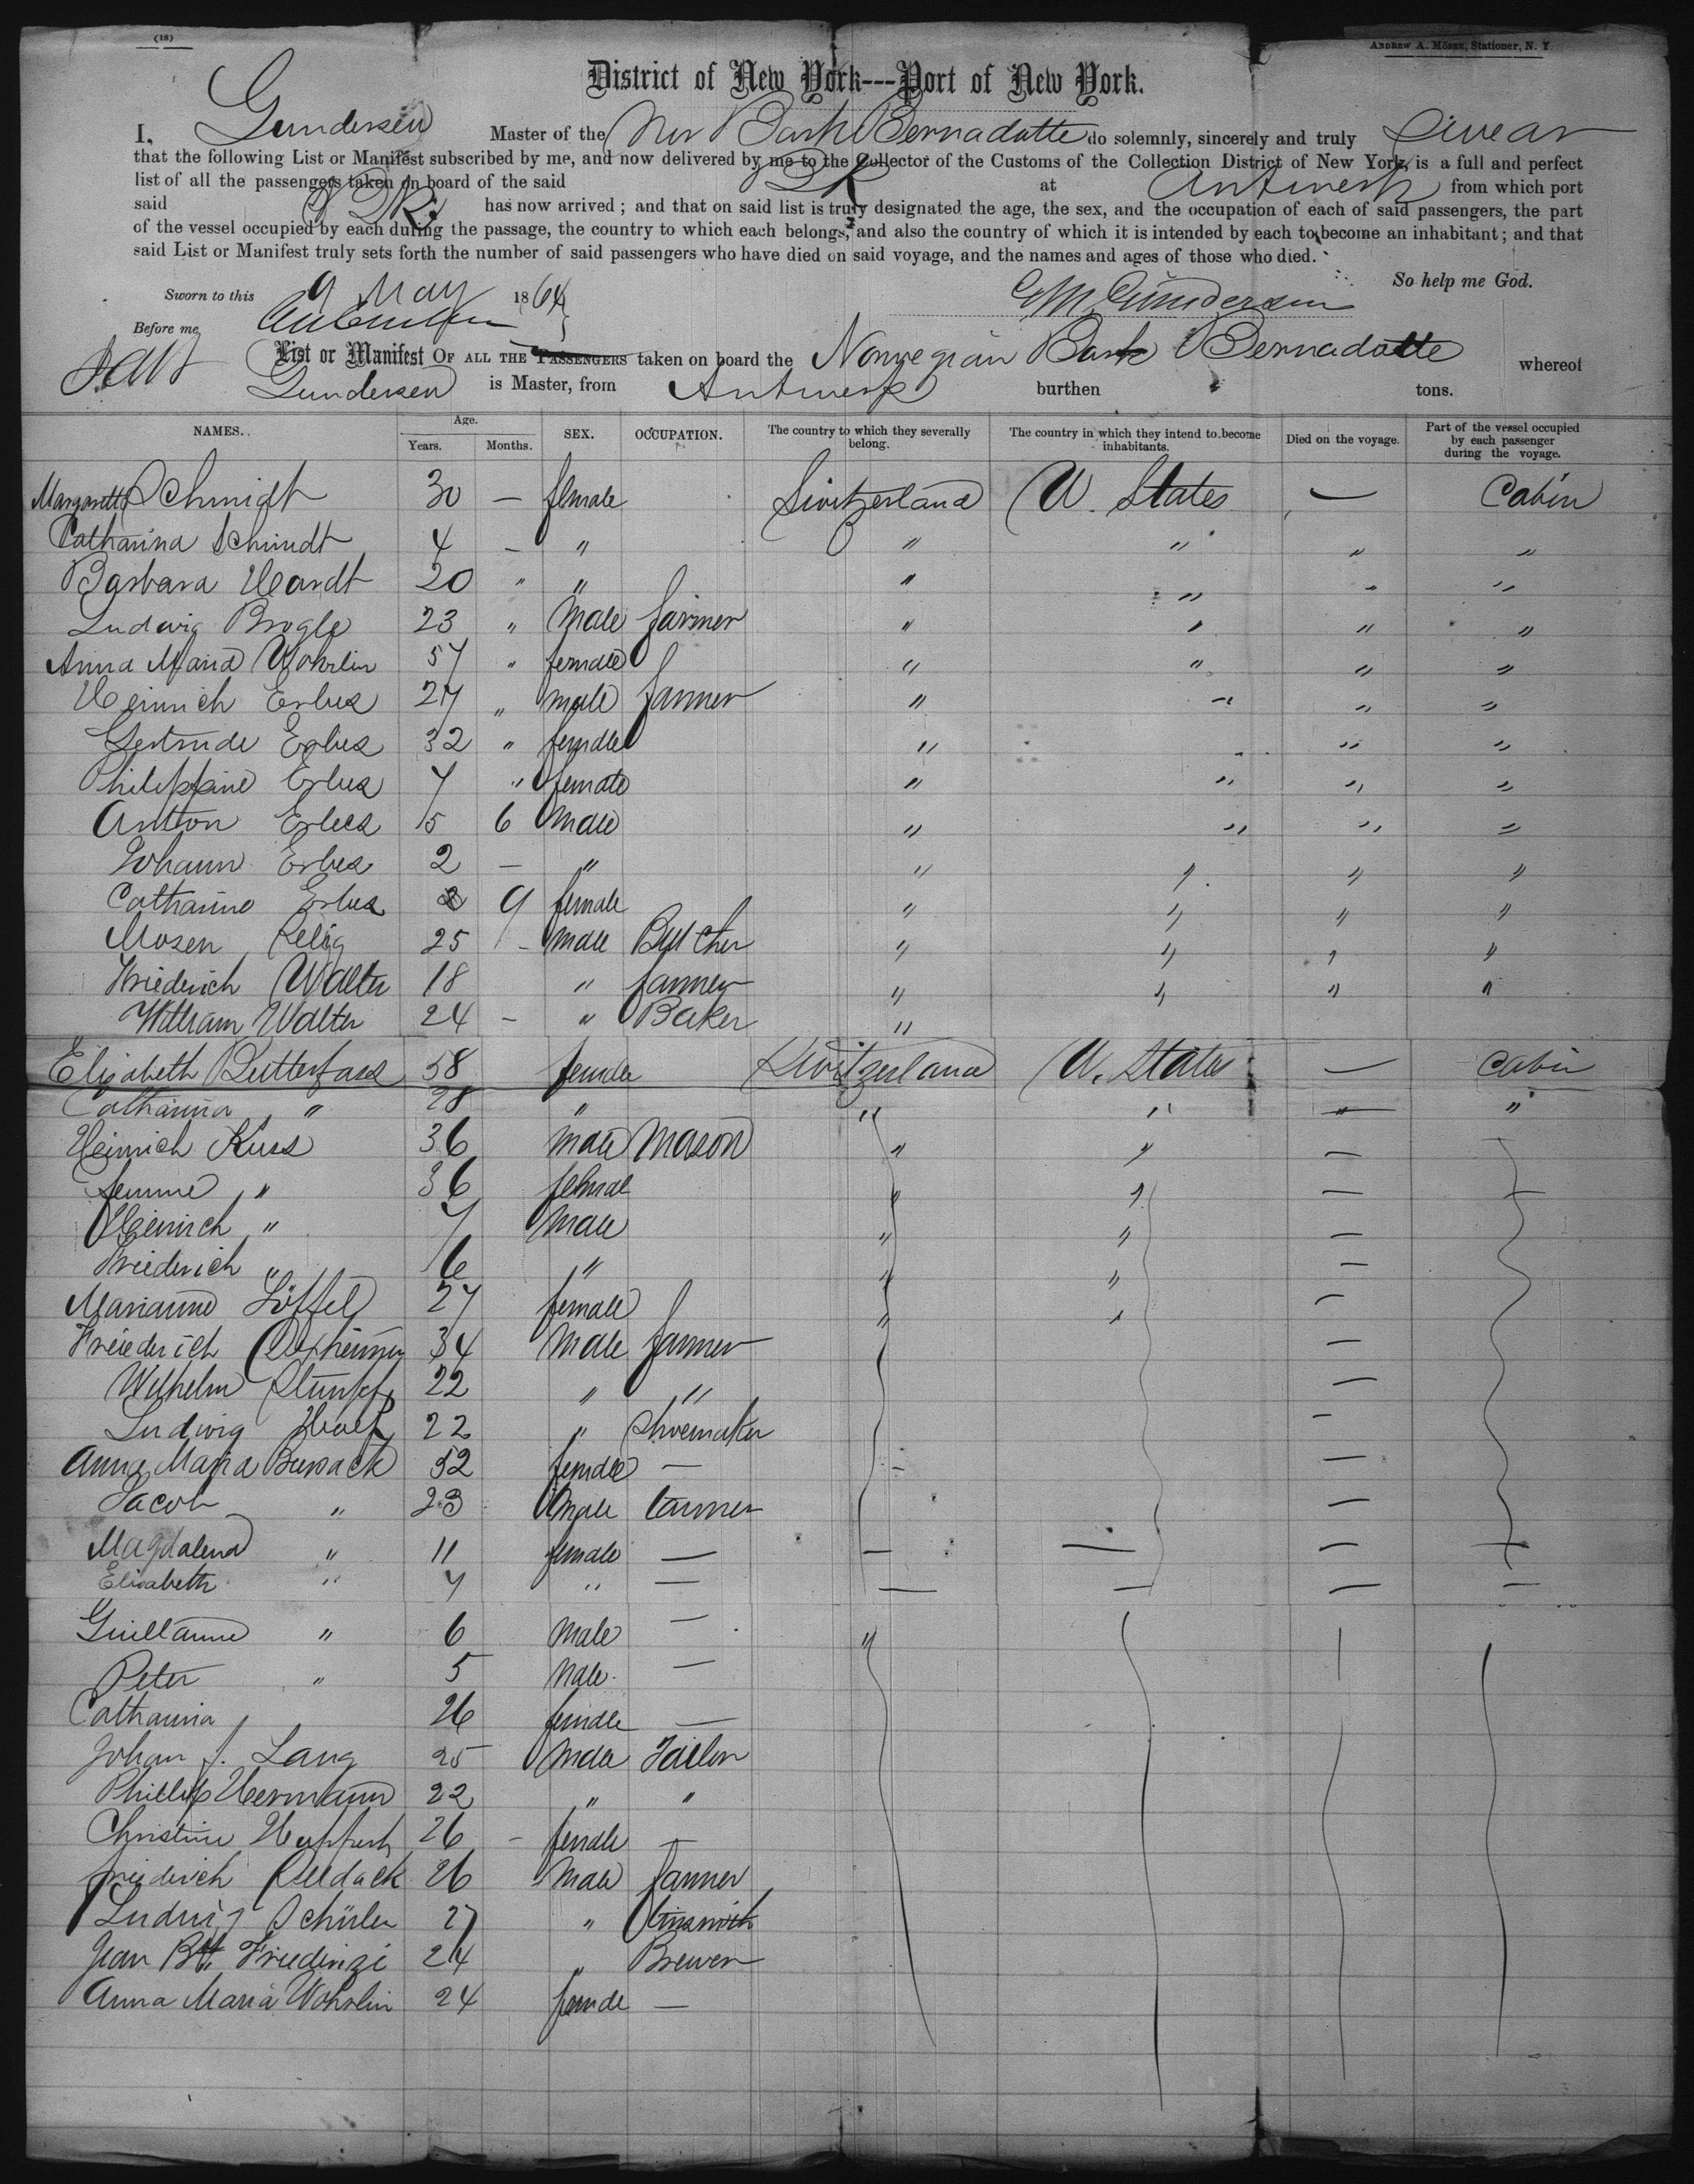 (18)
ANDREW A. MÖSER, Stationer, N. Y.
District of New York---Port of New York.
I, Gundersen Master of the Nor Bark Bernadotte do solemnly, sincerely and truly Swear
that the following List or Manifest subscribed by me, and now delivered by me to the Collector of the Customs of the Collection District of New York, is a full and perfect
list of all the passengers taken on board of the said at Antwerp from which port
said has now arrived ; and that on said list is truly designated the age, the sex, and the occupation of each of said passengers, the part
of the vessel occupied by each during the passage, the country to which each belongs, and also the country of which it is intended by each to become an inhabitant ; and that
said List or Manifest truly sets forth the number of said passengers who have died on said voyage, and the names and ages of those who died.
So help me God.
Sworn to this 9 May 1864 Gundersen
Before me
List or Manifest OF ALL THE PASSENGERS taken on board the Norwegian Bark Bernadotte whereof
Gundersen is Master, from Antwerp burthen tons.
NAMES. Age. Years. Months. SEX. OCCUPATION. The country to which they severally belong. The country in which they intend to become inhabitants. Died on the voyage. Part of the vessel occupied by each passenger during the voyage.
Margaretta Schmidt 30 — female Switzerland U. States — Cabin
Catharina Schmidt 4 — " " " " "
Barbara Heardt 20 " " " " " "
Ludwig Brogle 23 " Male farmer " " " "
Anna Maria Wohrlin 57 " female " " " "
Heinrich Erbes 27 " male farmer " " " "
Gertrude Erbes 32 " female " " " "
Philippine Erbes 7 " female " " " "
Anton Erbes 5 6 Male " " " "
Johann Erbes 2 — " " " " "
Catharine Erbes 9 female " " " "
Mosen Selig 25 - male Butcher " " " "
Friederich Walter 18 " farmer " " " "
William Walter 24 — " Baker "
Elisabeth Butterfass 58 female Switzerland U. States — Cabin
Catharina " 28 " " " " "
Heinrich Kuss 36 male Mason " " —
femme " 36 female " " —
Heinrich " 7 male " " —
Friederich " 6 " " " —
Marianne Löffel 27 female " " —
Friederich 34 Male farmer —
Wilhelm Stumpf 22 " " —
Ludwig Wolf 22 " Shoemaker —
Anna Maria 52 female — —
Jacob " 23 Male farmer —
Magdalena " 11 female — — — — —
Elisabeth " 7 " — — — — —
Guillaume " 6 Male — "
Peter " 5 Male —
Catharina 26 female —
Johan J. Lang 25 Male Tailor
Phillip Hermann 22 " "
Christine 26 - female —
Friederich 26 Male farmer
Ludwig Schüler 27 " tinsmith
Jean Btt. 24 " Brewer
Anna Maria Wohrlin 24 female —